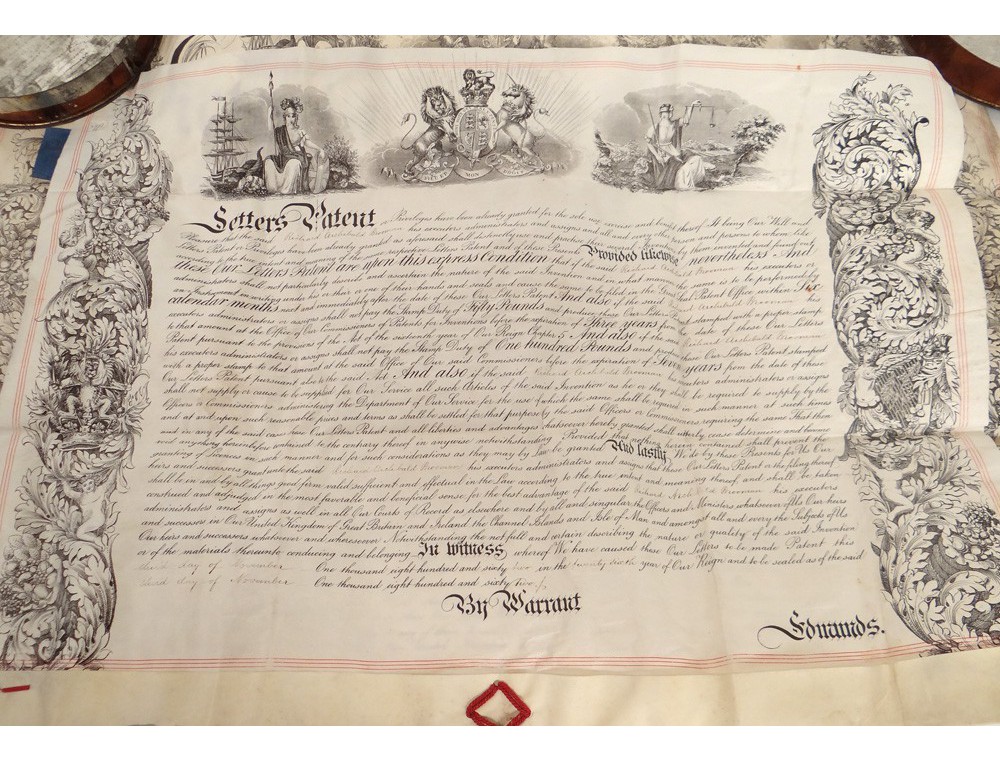 DIEU ET MON DROIT
Letters Patent or Privileges have been already granted for the sole use exercise and benefit thereof It being Our Will and
Pleasure that the said Richard Archibald Brooman his executors administrators and assigns and all and every other person and persons to whom like
Letters Patent or Privileges have been already granted as aforesaid shall distinctly use and practise their several Inventions by them invented and found out
according to the true intent and meaning of the same respective Letters Patent and of these Presents Provided likewise nevertheless And
these Our Letters Patent are upon this express Condition that if the said Richard Archibald Brooman his executors or
administrators shall not particularly describe and ascertain the nature of the said Invention and in what manner the same is to be performed by
an Instrument in writing under his or their or one of their hands and seals and cause the same to be filed in the Great Seal Patent Office within Six
calendar months next and immediately after the date of these Our Letters Patent And also if the said Richard Archibald Brooman his
executors administrators or assigns shall not pay the Stamp Duty of Fifty Pounds and produce these Our Letters Patent stamped with a proper stamp
to that amount at the Office of Our Commissioners of Patents for Inventions before the expiration of Three years from the date of these Our Letters
Patent pursuant to the provisions of the Act of the sixteenth year of Our Reign Chapter 5 And also if the said Richard Archibald Brooman
his executors administrators or assigns shall not pay the Stamp Duty of One hundred Pounds and produce these Our Letters Patent stamped
with a proper stamp to that amount at the said Office of Our said Commissioners before the expiration of Seven years from the date of these
Our Letters Patent pursuant also to the said Act And also if the said Richard Archibald Brooman his executors administrators or assigns
shall not supply or cause to be supplied for Our Service all such Articles of the said Invention as he or they shall be required to supply by the
Officers or Commissioners administering the Department of Our Service for the use of which the same shall be required in such manner at such times
and at and upon such reasonable prices and terms as shall be settled for that purpose by the said Officers or Commissioners requiring the same That then
and in any of the said cases these Our Letters Patent and all liberties and advantages whatsoever hereby granted shall utterly cease determine and become
void anything hereinbefore contained to the contrary thereof in anywise notwithstanding Provided that nothing herein contained shall prevent the
granting of licences in such manner and for such considerations as they may by Law be granted And lastly We do by these Presents for Us Our
heirs and successors grant unto the said Richard Archibald Brooman his executors administrators and assigns that these Our Letters Patent or the filing thereof
shall be in and by all things good firm valid sufficient and effectual in the Law according to the true intent and meaning thereof and shall be taken
construed and adjudged in the most favorable and beneficial sense for the best advantage of the said Richard Archibald Brooman his executors
administrators and assigns as well in all Our Courts of Record as elsewhere and by all and singular the Officers and Ministers whatsoever of Us Our heirs
and successors in Our United Kingdom of Great Britain and Ireland the Channel Islands and Isle of Man and amongst all and every the Subjects of Us
Our heirs and successors whatsoever and wheresoever Notwithstanding the not full and certain describing the nature or quality of the said Invention
or of the materials thereunto conducing and belonging In witness whereof We have caused these Our Letters to be made Patent this
third day of November One thousand eight hundred and sixty two in the twenty sixth year of Our Reign and to be sealed as of the said
third day of November One thousand eight hundred and sixty two
By Warrant
Edmunds.